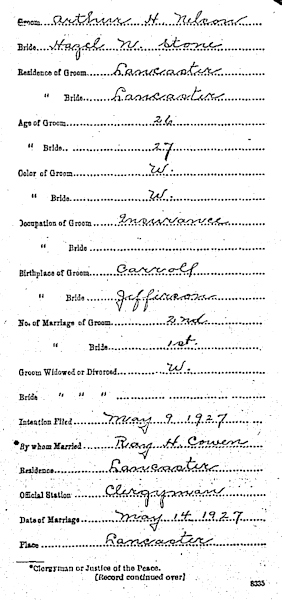 Groom Arthur H. Nelson
Bride Hazel N. Stone
Residence of Groom Lancaster
" Bride Lancaster
Age of Groom 26
" Bride 27
Color of Groom W.
" Bride W.
Occupation of Groom Insurance
" Bride
Birthplace of Groom Carroll
" Bride Jefferson
No. of Marriage of Groom 2nd
" Bride 1st.
Groom Widowed or Divorced W.
Bride " " "
Intention Filed May 9 1927
*By whom Married Ray H. Cowen
Residence Lancaster
Official Station Clergyman
Date of Marriage May 14 1927
Place Lancaster
*Clergyman or Justice of the Peace.
(Record continued over)
8335